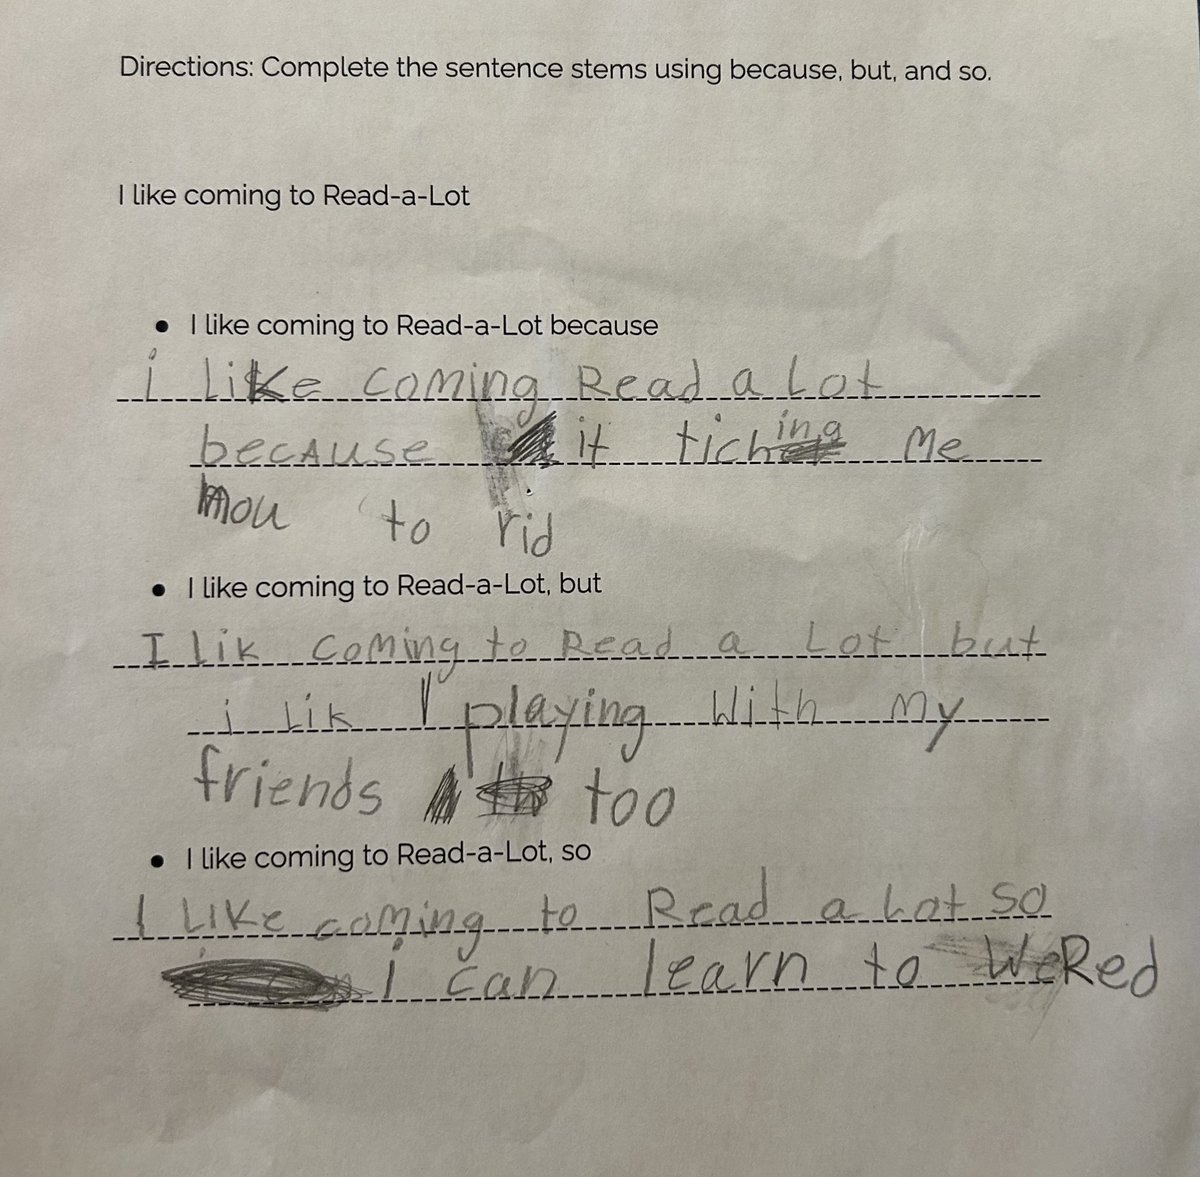 Directions: Complete the sentence stems using because, but, and so.
I like coming to Read-a-Lot
• I like coming to Read-a-Lot because
i like coming Read a Lot
because it tiching Me
mou to rid
• I like coming to Read-a-Lot, but
I lik coming to Read a Lot but
i lik playing With My
friends too
• I like coming to Read-a-Lot, so
I LIKe coming to Read a Lot so
i can learn to Red